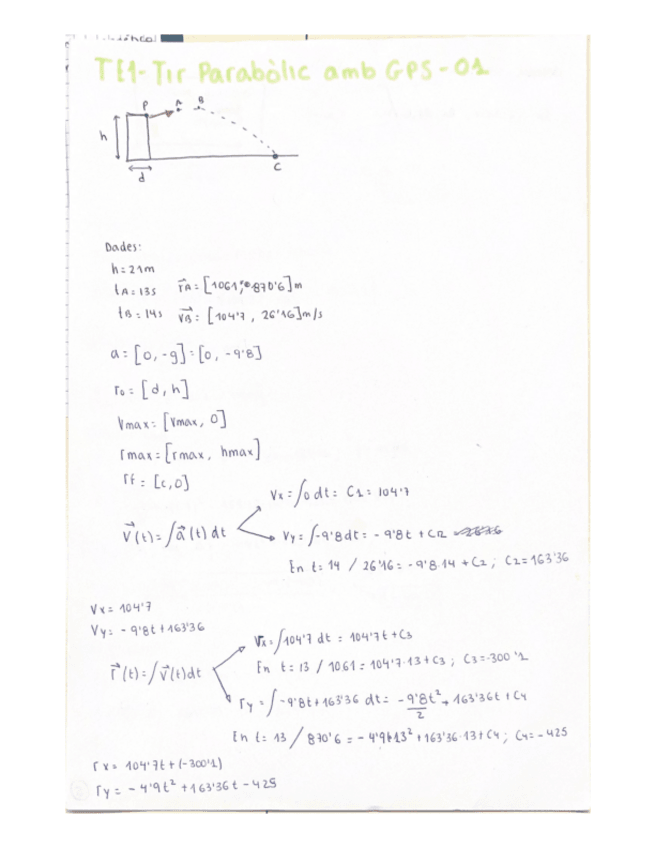 TE1-Tir Parabòlic amb GPS-01
P A B
h
d
C
Dades:
h=21m
tA=13s r⃗A=[1061, 870'6]m
tB=14s v⃗B=[104'7, 26'16]m/s
a=[0,-g]=[0,-9'8]
r0=[d,h]
Vmax=[Vmax, 0]
rmax=[rmax, hmax]
rf=[c,0]
Vx=∫0 dt= C1= 104'7
v⃗(t)=∫a⃗(t) dt
Vy=∫-9'8dt= -9'8t + C2
En t=14 / 26'16= -9'8·14 + C2; C2=163'36
Vx= 104'7
Vy= -9'8t + 163'36
rx=∫104'7 dt = 104'7t + C3
r⃗(t)=∫v⃗(t)dt
En t=13 / 1061=104'7·13+C3; C3=-300'1
ry=∫-9'8t+163'36 dt= -9'8t²/2 + 163'36t + C4
En t=13 / 870'6=-4'9·13²+163'36·13+C4; C4=-425
rx= 104'7t+(-300'1)
ry= -4'9t²+163'36t-425